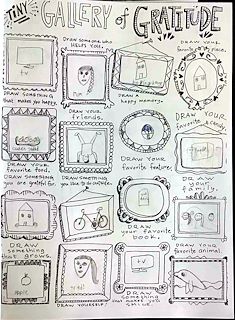 TINY GALLERY of GRATITUDE
DRAW SOMETHING
that makes you happy.
DRAW someone who
HELPS YOU.
DRAW a
happy memory.
DRAW YOUR
favorite place.
DRAW YOUR
favorite food.
DRAW your
friends.
DRAW YOUR
favorite feature.
DRAW YOUR
favorite
DRAW Someone
you are grateful for.
DRAW SOMETHING
you like to do outside.
DRAW
your favorite
book.
DRAW
your
family.
DRAW
something
that grows.
DRAW YOURSELF.
DRAW
something
that makes you
SMILE.
DRAW YOUR
favorite animal.
TV
apple
TV